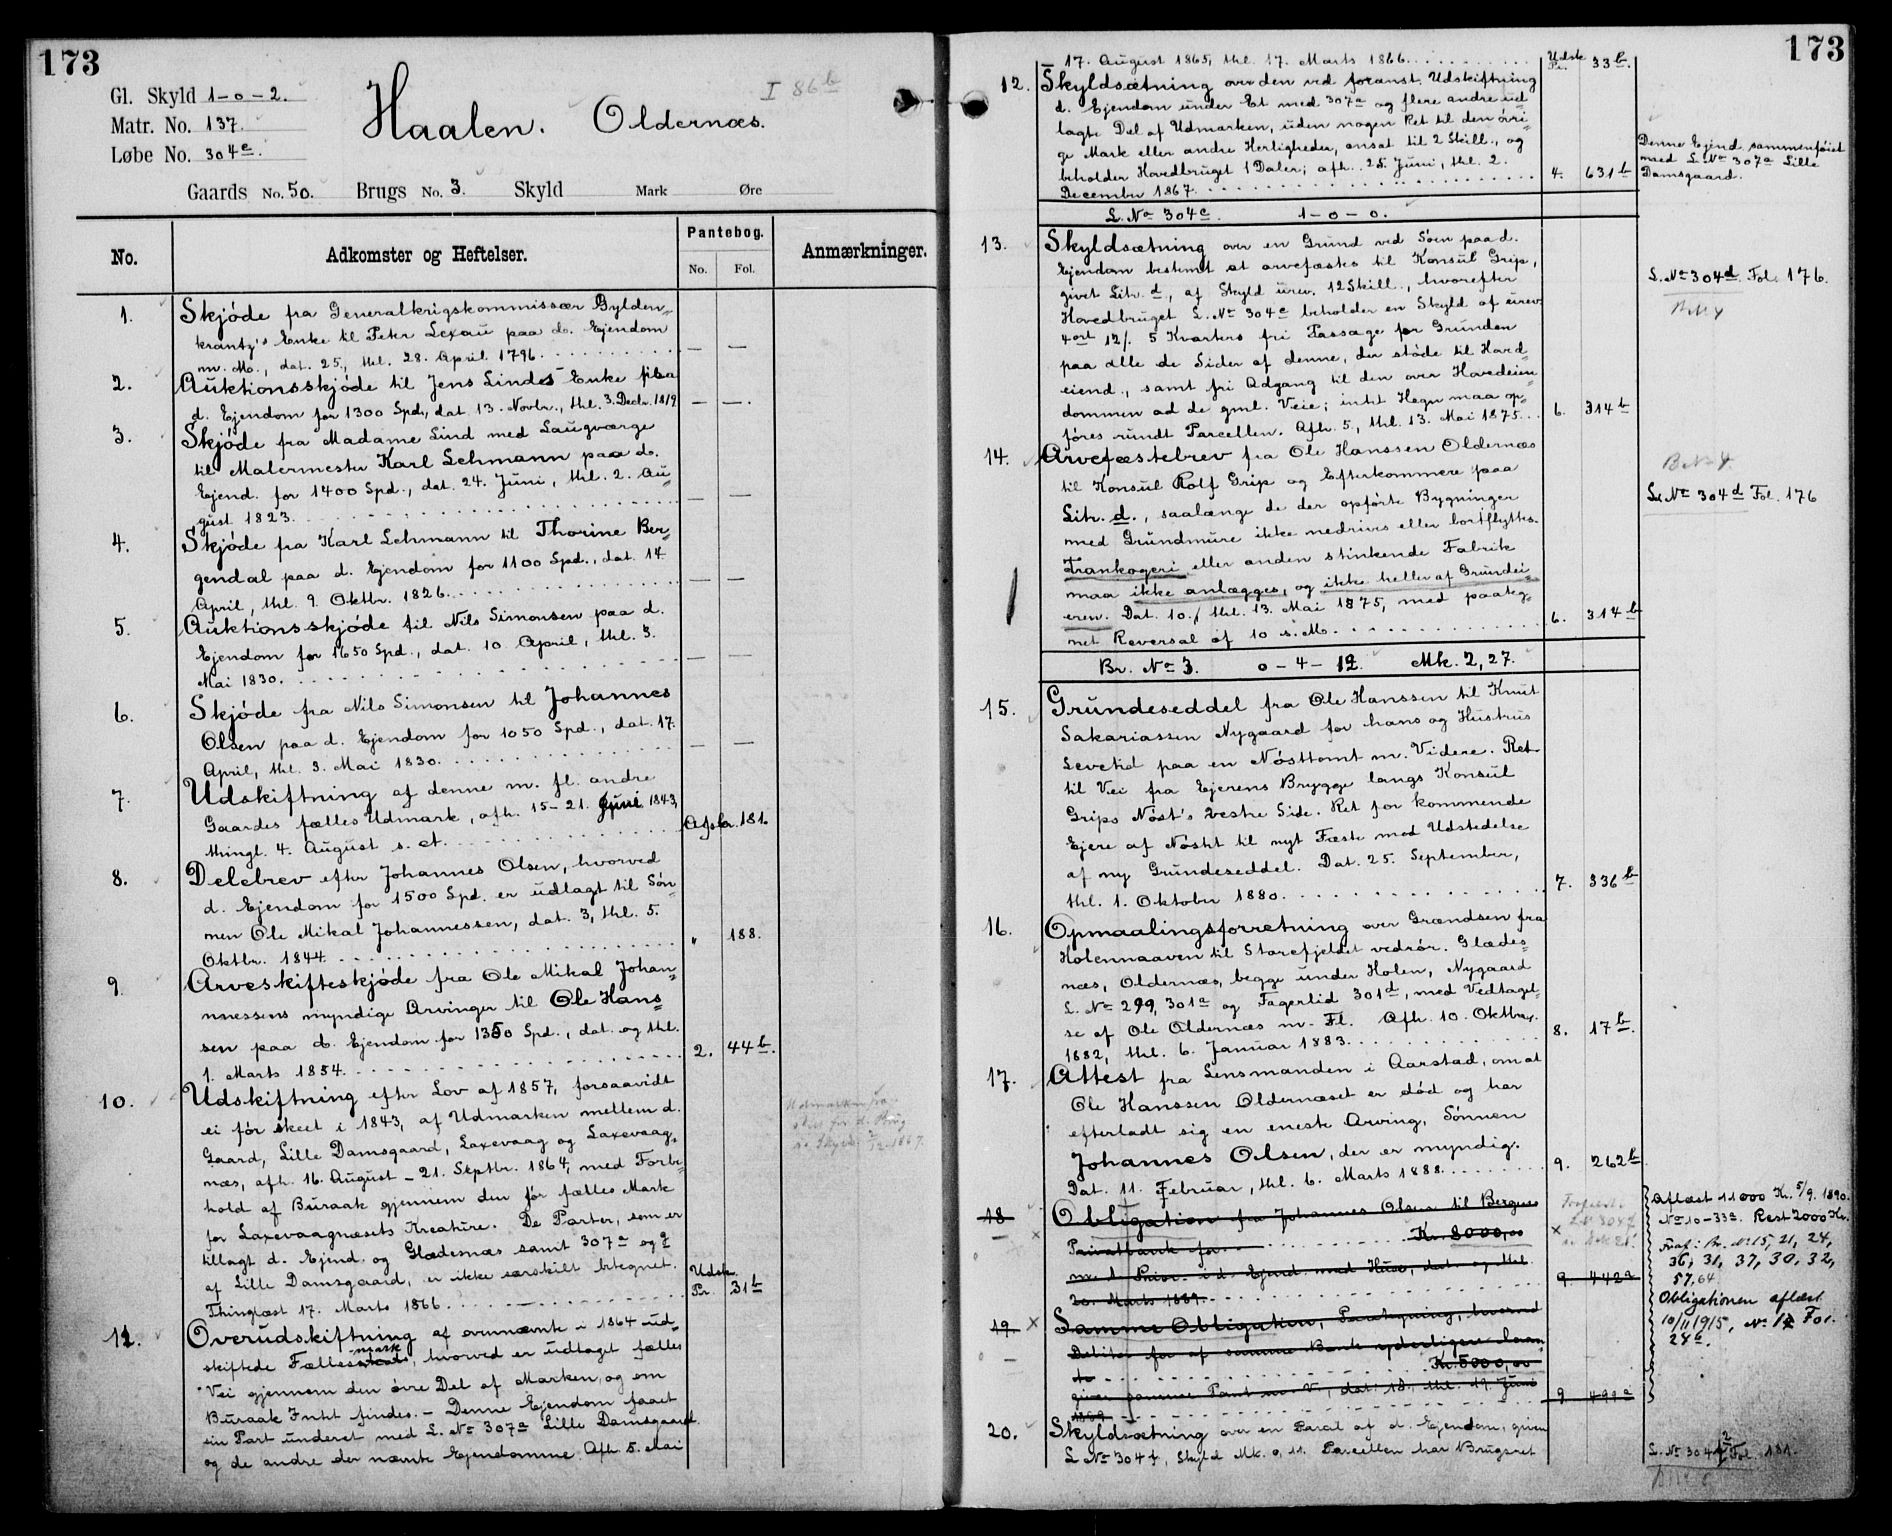 173
Gl. Skyld 1-0-2.
Matr. No. 137.
Løbe No. 304c.
Haalen. Oldernæs.
I 86b
Gaards No. 50. Brugs No. 3. Skyld Mark Øre
No. Adkomster og Heftelser. Pantebog. No. Fol. Anmærkninger.
1. Skjøde fra Generalkrigskommissær Gylden-
krantz's Enke til Peter Lexau paa d. Ejendom
m. M., dat. 25, thl. 28. April 1796.
2. Auktionsskjøde til Jens Linds Enke paa
d. Ejendom for 1300 Spd., dat. 13. Novbr., thl. 3. Decbr. 1819
3. Skjøde fra Madame Lind med Laugværge
til Malermester Karl Lehmann paa d.
Ejend. for 1400 Spd., dat. 24. Juni, thl. 2. Au-
gust 1823.
4. Skjøde fra Karl Lehmann til Thorine Ber-
gendal paa d. Ejendom for 1100 Spd., dat. 14
April, thl. 9. Oktbr. 1826.
5. Auktionsskjøde til Nils Simonsen paa d.
Ejendom for 1650 Spd., dat. 10 April, thl. 3.
Mai 1830.
6. Skjøde fra Nils Simonsen til Johannes
Olsen paa d. Ejendom for 1050 Spd., dat. 17.
April, thl. 3. Mai 1830.
7. Udskiftning af denne m. fl. andre
Gaardes fælles Udmark, afh. 15-21. Juni 1843,
thingl. 4. August s. A. 181.
8. Delebrev efter Johannes Olsen, hvorved
d. Ejendom for 1500 Spd. er udlagt til Søn-
nen Ole Mikal Johannessen, dat. 3, thl. 5.
Oktbr. 1844. " 188.
9. Arveskifteskjøde fra Ole Mikal Johan-
nessens myndige Arvinger til Ole Hans-
sen paa d. Ejendom for 1350 Spd., dat. og thl.
1. Marts 1854. 2. 44b.
10. Udskiftning efter Lov af 1857, forsaavidt
ei før skeet i 1843, af Udmarken mellem d.
Gaard, Lille Damsgaard, Laxevaag og Laxevaag-
næs, afh. 16. August - 21. Septbr. 1864, med Forbe-
hold af Buraak gjennem den før fælles Mark
for Laxevaagnæsets Kreature. De Parter, som er
tillagt d. Ejend. og Glædesnæs samt 307a og g
af Lille Damsgaard, er ikke særskilt betegnet.
Thinglæst 17. Marts 1866. Udsk. Pr. 31b
11. Overudskiftning af ovennævnte i 1864 ud-
skiftede Fællesmark, hvorved er udlagt fælles
Vei gjennem den øvre Del af Marken, og om
Buraak Intet findes. - Denne Ejendom faaet
sin Part underet med L. No 307a Lille Damsgaard
og de andre der nævnte Ejendomme. Afh. 5. Mai
173
17. August 1865, thl. 17. Marts 1866. Udsk. Pr. 33b.
12. Skyldsætning over den ved foranst. Udskiftning
d. Ejendom under Et med 307a og flere andre ud
lagte Del af Udmarken, uden nogen Ret til den øvri-
ge Mark eller andre Herligheder, ansat til 2 Skill., og
beholder Hovedbruget 1 Daler; afh. 25. Juni, thl. 2.
December 1867. 4. 631b
Denne Ejend. sammenføiet
med L. No 307a Lille
Damsgaard.
L. No 304c. 1-0-0.
13. Skyldsætning over en Grund ved Søen paa d.
Ejendom bestemt at arvefæstes til Konsul Grip,
givet Litr. d, af Skyld urev. 12 Skill., hvorefter
Hovedbruget L. No 304c beholder en Skyld af urev.
4ort 12/. 5 Kvarters fri Passage for Grunden
paa alle de Sider af denne, der støde til Hoved
eiend., samt fri Adgang til den over Hovedeien-
dommen ad de gml. Veie; intet Hegn maa op-
føres rundt Parcellen. Afh. 5, thl. 13. Mai 1875. 6. 314b
L. No 304d Fol. 176.
14. Arvefæstebrev fra Ole Hanssen Oldernæs
til Konsul Rolf Grip og Efterkommere paa
Litr. d., saalænge de der opførte Bygninger
med Grundmure ikke nedrives eller bortflyttes.
Trankogeri eller anden stinkende Fabrik
maa ikke anlægges, og ikke heller af Grundei-
eren. Dat. 10, thl. 13. Mai 1875, med paateg-
net Reversal af 10 s. M. 6. 314b
L. No 304d Fol. 176
Br. No 3. 0-4-12. Mk. 2,27.
15. Grundeseddel fra Ole Hanssen til Knut
Sakariassen Nygaard for hans og Hustrus
Levetid paa en Nøsttomt m. Videre. Ret
til Vei fra Ejerens Brygge langs Konsul
Grips Nøst's vestre Side. Ret for kommende
Ejere af Nøstet til nyt Fæste mod Udstedelse
af ny Grundeseddel. Dat. 25. September,
thl. 1. Oktober 1880. 7. 336b
16. Opmaalingsforretning over Grændsen fra
Holennaaven til Storefjeldet vedrør. Glædes-
næs, Oldernæs, begge under Holen, Nygaard
L. No 299, 301a og Fagerlid 301d, med Vedtagel-
se af Ole Oldernæs m. Fl. Afh. 10. Oktbr.
1882, thl. 6. Januar 1883. 8. 17b.
17. Attest fra Lensmanden i Aarstad, om at
Ole Hanssen Oldernæset er død og har
efterladt sig en eneste Arving, Sønnen
Johannes Olsen, der er myndig.
Dat. 11. Februar, thl. 6. Marts 1888. 9. 262b
18 Obligation fra Johannes Olsen til Bergens
Privatbank for Kr. 8000,00
m. 1. Prior. i d. Ejend. med Huse, dat. og thl.
20. Marts 1889. 9. 442a
19. Samme Obligation, Paategning, hvorved
Debitor for af samme Bank yderligere laan-
te Kr. 5000,00
giver samme Pant m. V., dat. 18, thl. 19. Juni
1889 9 499a
Aflæst 11000 Kr. 5/9. 1890.
No 10-33a. Rest 2000 Kr.
Fraf: Br. No 15, 21, 24,
36, 31, 37, 30, 32,
57, 64
Obligationen aflæst
10/11 1915, No 12 Fol.
24a.
20. Skyldsætning over en Parcel af d. Ejendom, given
L No 304f, Skyld Mk. 0,11. Parcellen har Brugsret
L. No 304f Fol. 181.